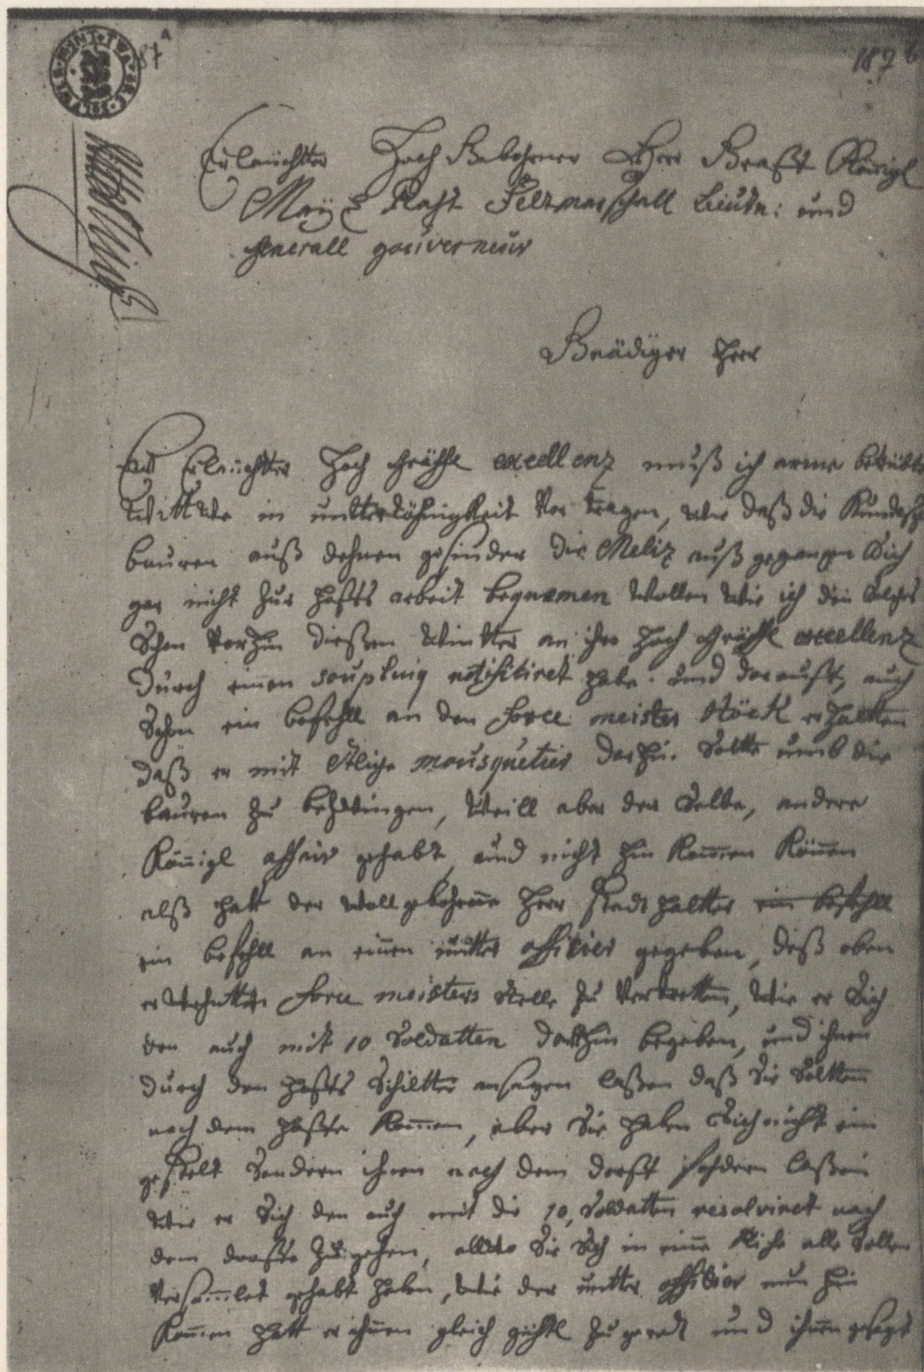 187
Erlauchter Hoch Gebohrner Herr Graff Königl
May: Raht Feltmarschall Lieutn: und
generall gouverneur
Gnädiger Herr
Erlauchter Hoch Gräffl excellenz muß ich arme betrübte
Wittwe in untterthänigkeit Vor tragen, wie daß die
bauren auß dehnen gesinder die Meliz auß gegangen Sich
gar nicht zur hoffes arbeit bequemen wollen wie ich den solches
Schon Vorhin dießen wintter an ihro Hoch Gräffl excellenz
durch einen souplicq notificiret habe. und darauff, auch
Schon ein befehll an den Force meister Röök erhaltten
daß er mit etliche mousquetier dahin solte umb die
bauren zu bezwingen, weill aber der selbe, andere
Königl affair gehabt und nicht hin kommen können
alß hatt der wollgebohrne Herr stadt haltter ein befehll
ein befehll an einen untter officier gegeben, deß oben
erwehnten Force meisters stelle zu vertretten, wie er sich
den auch mit 10 Soldatten dahin begeben, und ihnen
durch den hoffes Schiltter ansagen laßen daß Sie soltten
nach dem hoffe kommen, aber Sie haben Sich nicht ein
gestelt sondern ihnen nach dem dorff fodern laßen
wie er Sich den auch mit die 10, Soldatten resolviret nach
dem dorffe zu gehen, allwo Sie Sich in eine alle sollen
Versammlet gehabt haben, wie der untter officier nun hin
kommen hatt er ihnen gleich gühtl zu geredt und ihnen gesagt